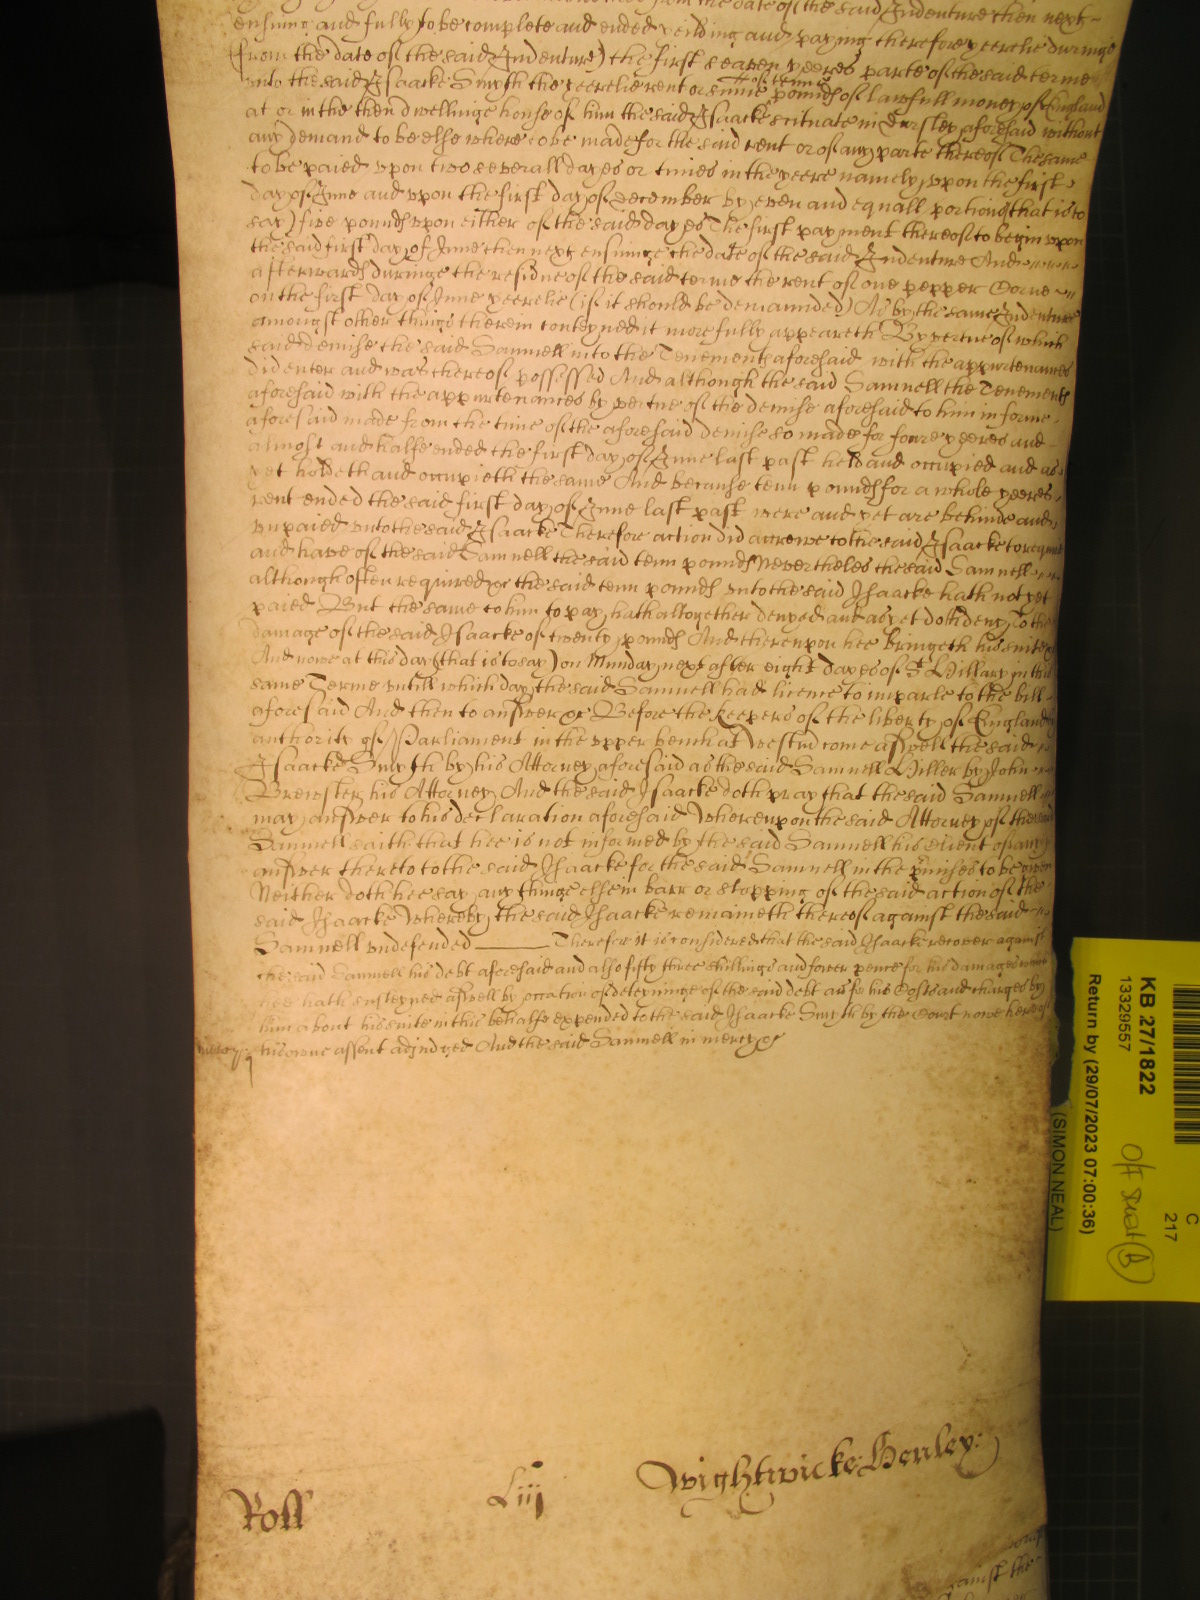 from the date of the said Indenture then next
ensuing and fully to be complete and ended yeilding and paying therefore yeerelie duringe
(from the date of the said Indenture) the first seaven yeeres parte of the said terme
unto the said Isaacke Smyth the yeerelie rent or summe of tenne pounds of lawfull money of England
at or in the then dwellinge house of him the said Isaacke scituate in Dursley aforesaid without
any demand to be else where to be made for the said rent or of any parte thereof The same
to be paied upon two severall dayes or times in the yeere namely upon the first
day of June and upon the first day of December by even and equall portions (that is to
say) five pounds upon either of the said dayes The first payment thereof to begin upon
the said first day of June then next ensuinge the date of the said Indenture And
afterwards duringe the residue of the said terme the rent of one pepper Corne
on the first day of June yeerelie (if it should be demaunded) As by the same Indenture
amongst other things therein conteyned it more fully appeareth By vertue of which
said demise the said Samuell into the Tenements aforesaid with the appurtenances
did enter and was thereof possessed And although the said Samuell the Tenements
aforesaid with the appurtenances by vertue of the demise aforesaid to him in forme
aforesaid made from the time of the aforesaid demise so made for foure yeeres and
almost and halfe ended the first day of June last past held and occupied and as
yet holdeth and occupieth the same And because tenn pounds for a whole yeeres
rent ended the said first day of June last past were and yet are behinde and
unpaied unto the said Isaacke Therefore action did accrewe to the said Isaacke to require
and have of the said Samuell the said tenn pounds Nevertheles the said Samuell
although often required &c the said tenn pounds unto the said Isaacke hath not yet
paied But the same to him to pay hath altogether denyed and as yet doth deny To the
damage of the said Isaacke of twenty pounds And thereupon hee bringeth his suite &c
And nowe at this day (that is to say) on Munday next after eight dayes of St Hillary in this
same Terme untill which day the said Samuell had licence to imparle to the bill
aforesaid And then to answer &c Before the keepers of the liberty of England by
authority of Parliament in the upper bench at Westm come aswell the said
Isaacke Smyth by his Attorney aforesaid as the said Samuell Hiller by John
Brewster his Attorney And the said Isaacke doth pray that the said Samuell
may answer to his declaration aforesaid Whereupon the said Attorney of the said
Samuell saith that hee is not informed by the said Samuell his Client of any
answer thereto to the said Isaacke for the said Samuell in the pmises to be given
Neither doth hee say any thinge else in barr or stopping of the said action of the
said Isaacke Whereby the said Isaacke remaineth thereof against the said
Samuell undefended Therefore it is considered that the said Isaacke recover against
the said Samuell his debt aforesaid and also fifty three shillings and fower pence for his damages which
hee hath susteyned aswell by occation of deteyninge of the said debt as for his Costs and charges by
him about his suite in this behalfe expended to the said Isaacke Smyth by the Court nowe here of
mercy his owne assent adjudged And the said Samuell in mercy &c
Roll
Liij
Wightwicke: Henley:
against the
C
217
KB 27/1822
13329557
Return by (29/07/2023 07:00:36)
(SIMON NEAL)